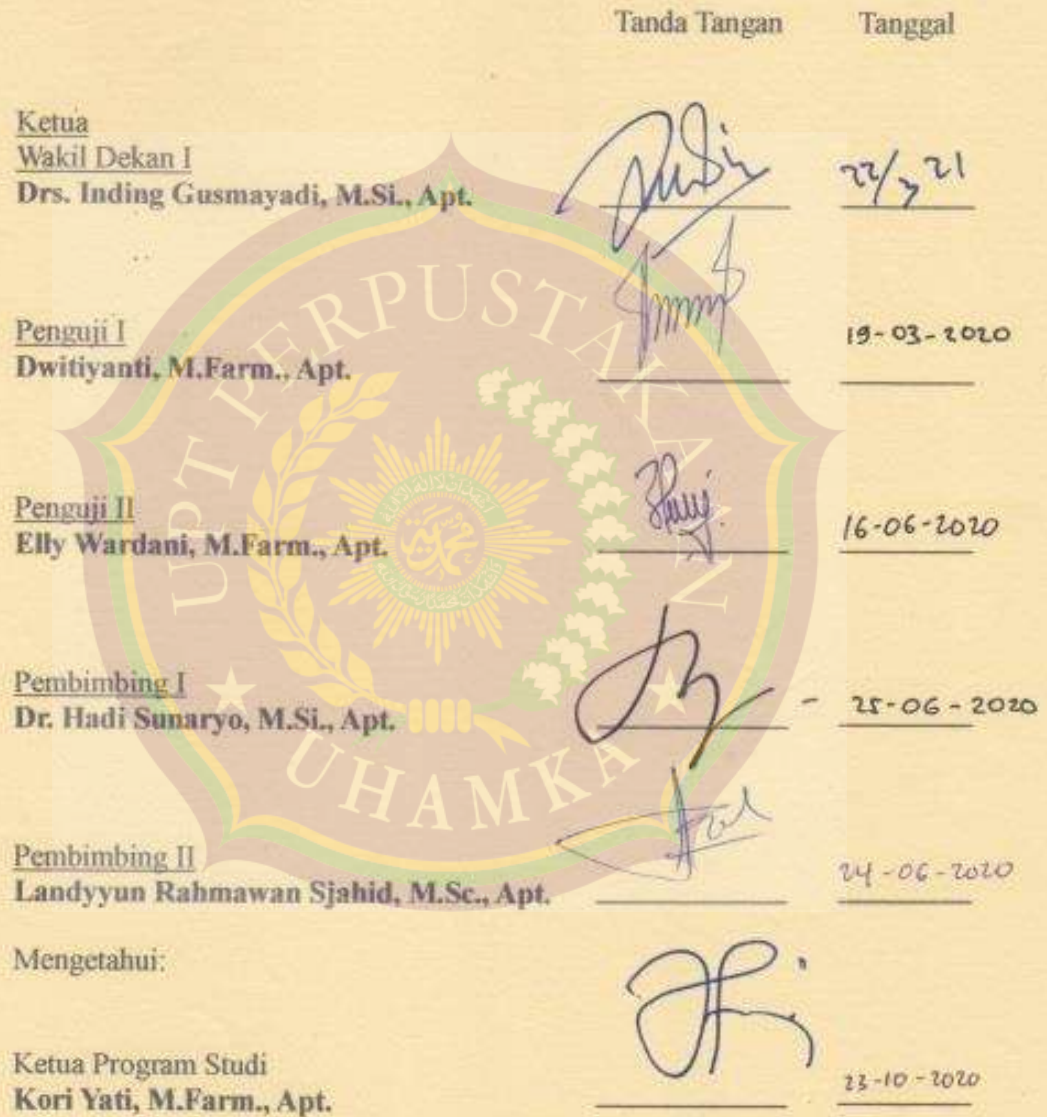 Tanda Tangan Tanggal
Ketua
Wakil Dekan I
Drs. Inding Gusmayadi, M.Si., Apt. 22/3 21
Penguji I 19-03-2020
Dwitiyanti, M.Farm., Apt.
Penguji II
Elly Wardani, M.Farm., Apt. 16-06-2020
Pembimbing I
Dr. Hadi Sunaryo, M.Si., Apt. - 25-06-2020
Pembimbing II
Landyyun Rahmawan Sjahid, M.Sc., Apt. 24-06-2020
Mengetahui:
Ketua Program Studi
Kori Yati, M.Farm., Apt. 23-10-2020
UPT PERPUSTAKAAN
UHAMKA